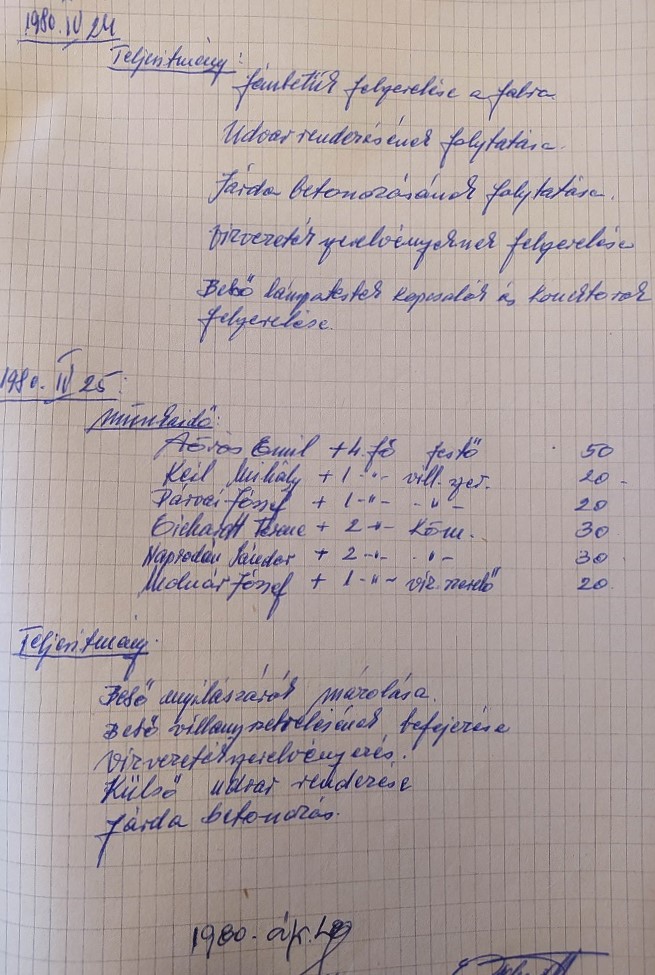 1980. IV 24
Teljesitmény:
fémbetük felszerelése a falra.
Udvar rendezésének folytatása.
Járda betonozásának folytatása.
Vizvezeték szerelvényeknek felszerelése
Belső lámpatestek kapcsolók és konektorok
felszerelése.
1980. IV 25:
Munkaidő:
Emil + 4. fő festő 50
Keil Mihály + 1 -"- vill. szer. 20 -
Párvai József + 1 -"- -"- 20
Ferenc + 2 -"- Köm. 30
Naprodán Sándor + 2 -"- -"- 30
Molnár József + 1 -"- viz. szerelő 20.
Teljesitmény.
Belső nyilászárók mázolása.
Belső villanyszerelésének befejezése
Vizvezeték szerelvényezés.
Külső udvar rendezése
Járda betonozás.
1980. ápr.